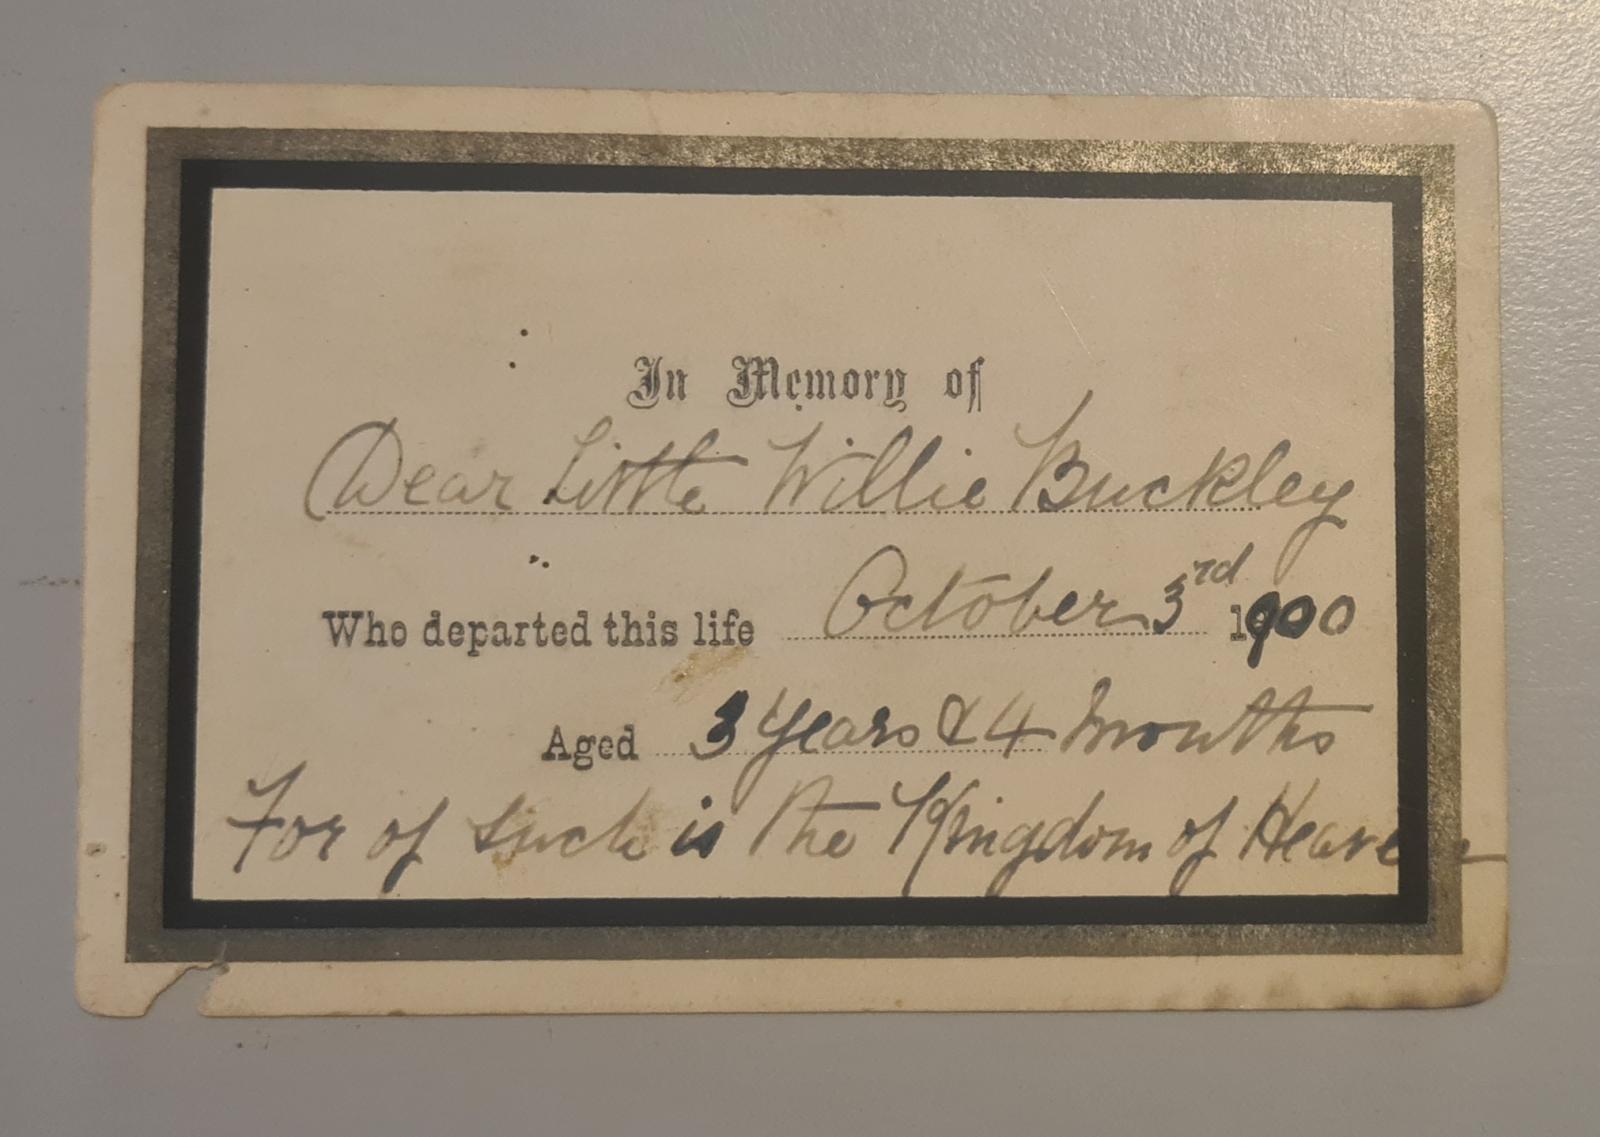 In Memory of
Dear Little Willie Buckley
Who departed this life October 3rd 1900
Aged 3 Years & 4 Months
For of such is the Kingdom of Heaven